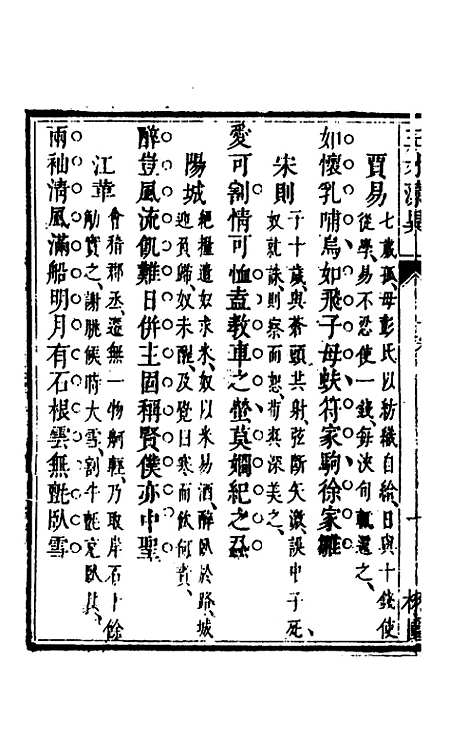 賈易
七歲孤母彭氏以紡織自給日與十錢使
從學易不忍使一錢每浹旬輒還之
如懷乳哺烏如飛子母蚨符家駒徐家雛
朱則
子十歲與蒼頭共射弦斷矢激誤中子死
奴就誅則察而恕荀爽深美之
愛可割情可恤盍教車之螫莫嫺紀之
陽城
絕糧遣奴求米奴以米易酒醉臥於路城
迎負歸奴未醒及覺曰寒而飲何責
醉豈風流飢難日併主固稱賢僕亦中聖
江革
會稽郡丞還無一物舸輕乃取岸石十餘
舫實之謝朓候時大雪割牛氈充臥具
兩袖清風滿船明月有石根雲無氈臥雪